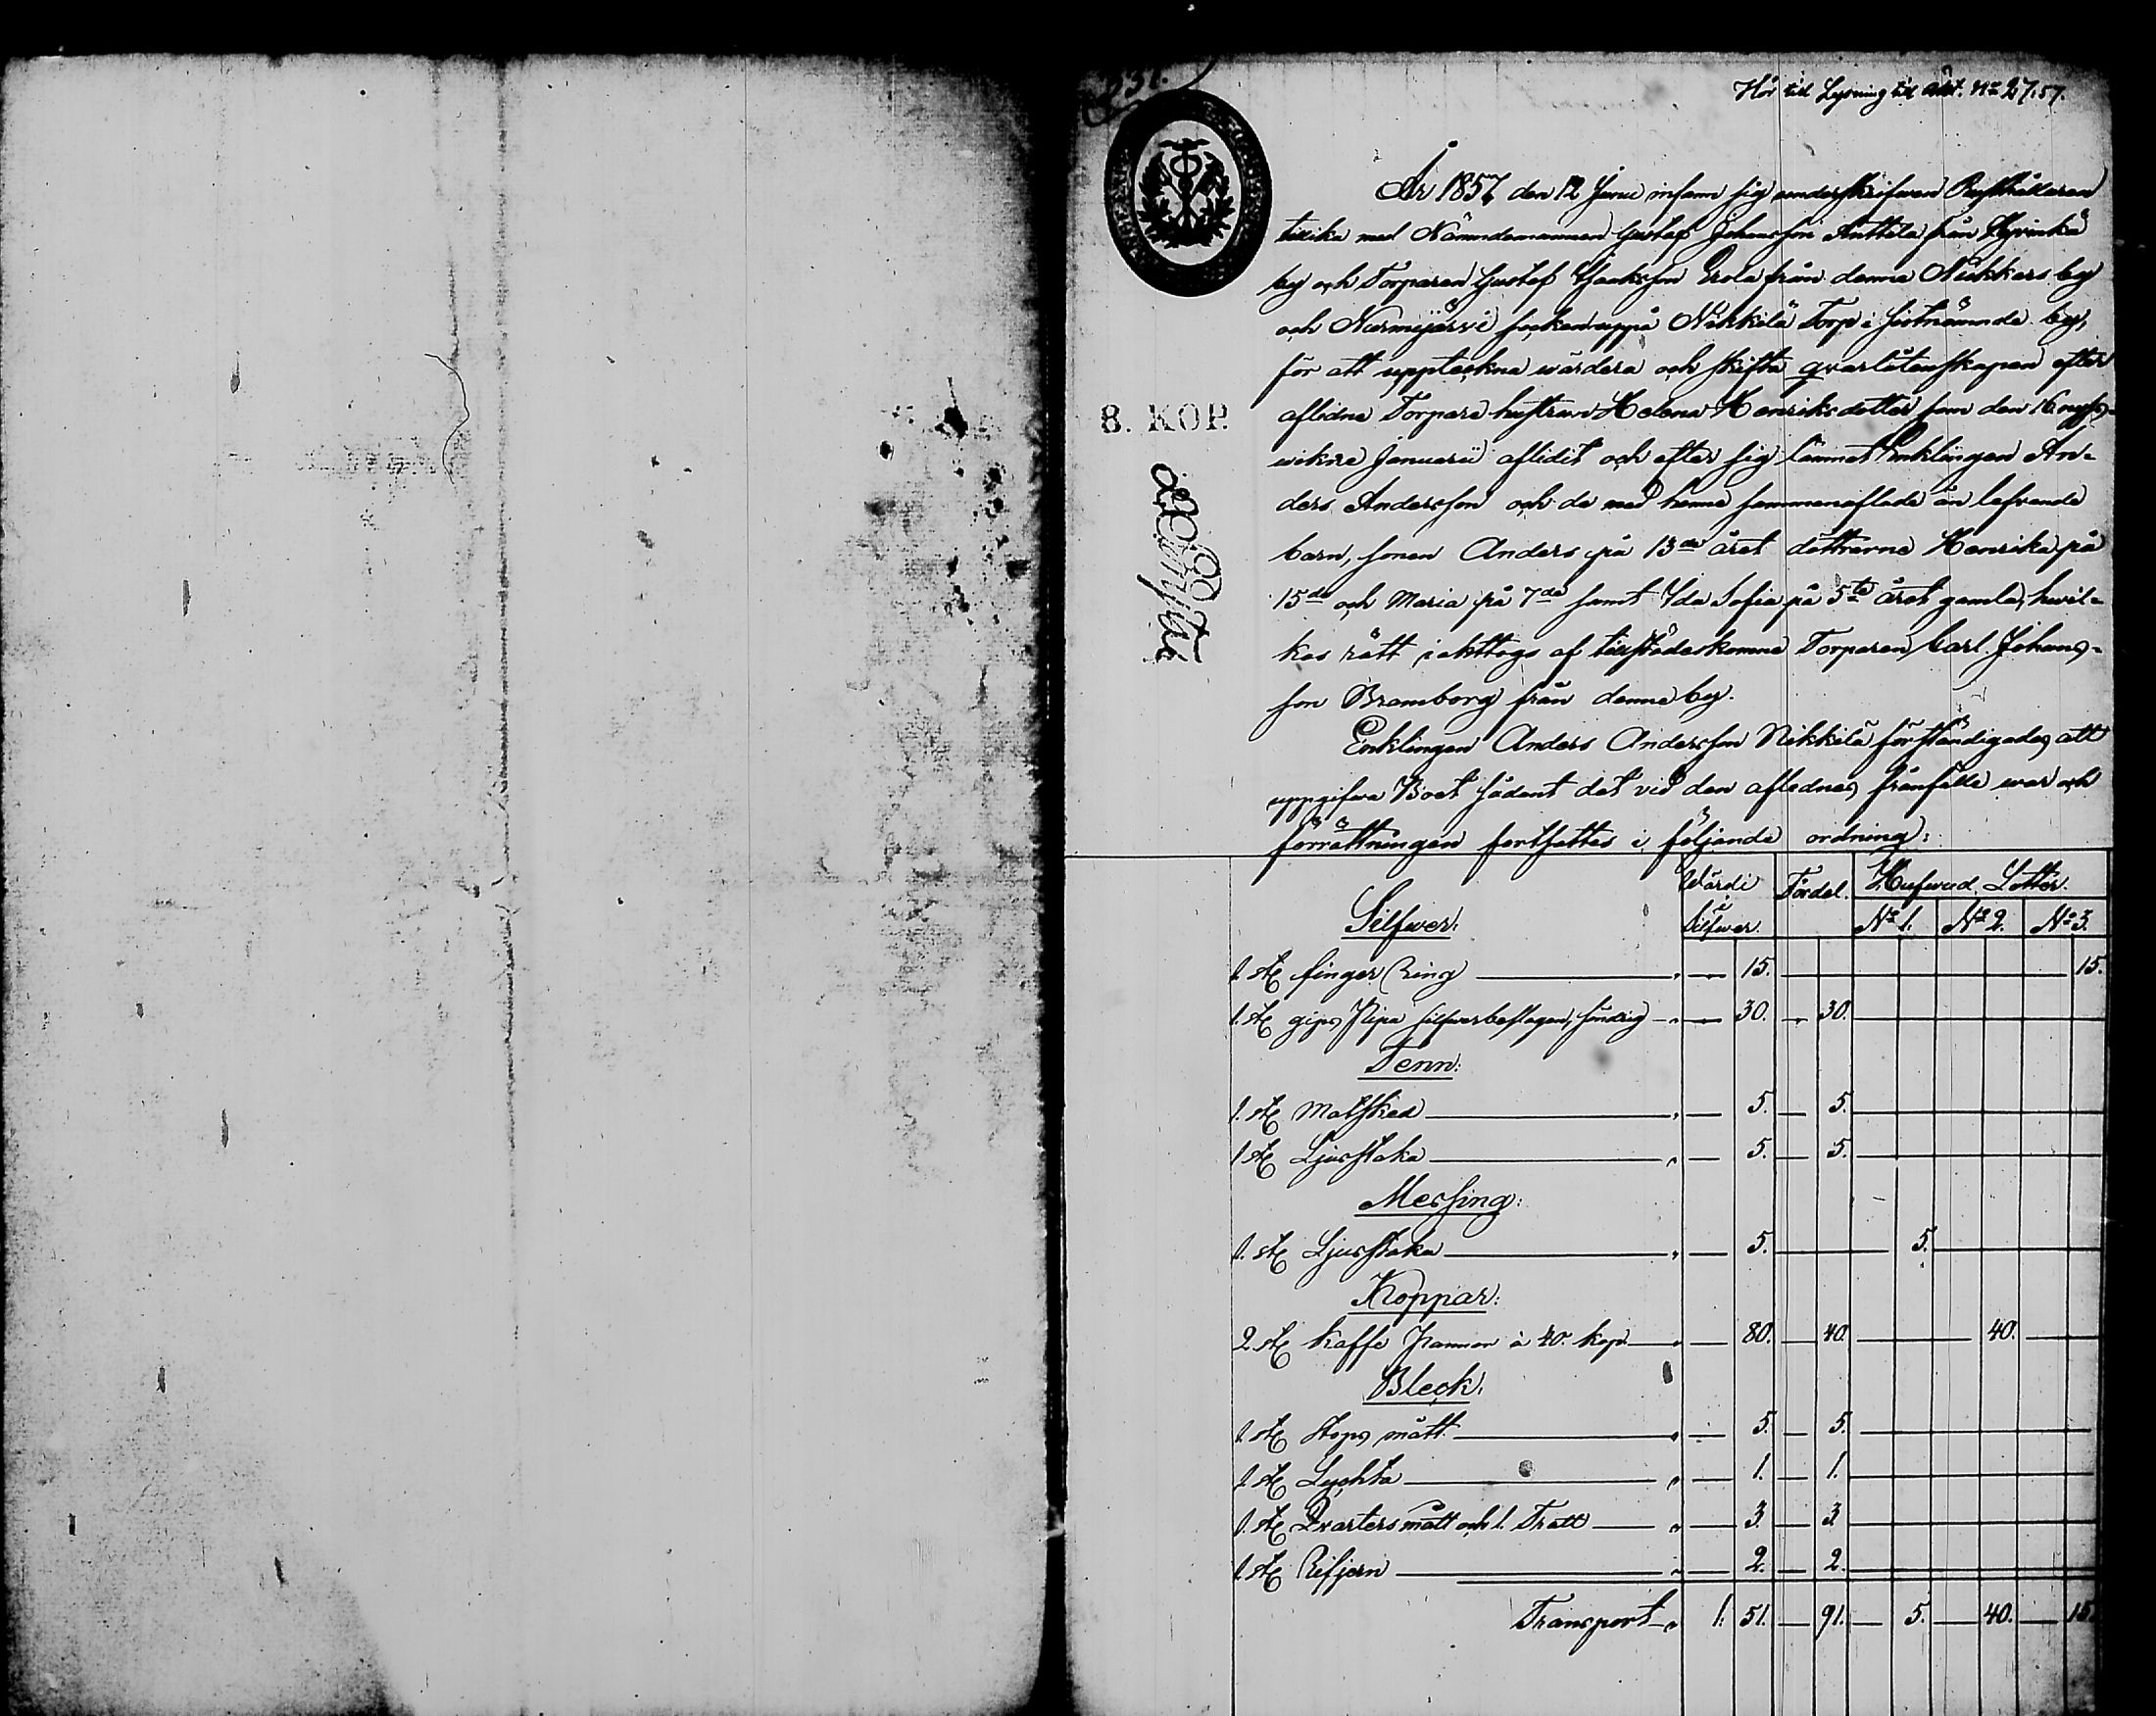 Hör til Lysning til akt. No 27.57.
År 1857 den 12 Junii infann sig underskrifwen Rusthållaren
tillika med Nämndemannen Gustaf Johansson Anttila från Hyvinkä
by och Torparen Gustaf Isaaksson Erola från denne Nukkars by
och Nurmijärvi socken uppå Nikkilä Torp i sistnämnde by,
för att uppteckna wärdera och skifta qvarlåtenskapen efter
aflidne Torpare hustrun Helena Henriksdotter som den 16 nyss-
wikne Januarii aflidit och efter sig lämnat Enklingen An-
ders Andersson och de med henne sammanaflade än lefvande
barn, sonen Anders på 13de året döttrarne Henrika på
15de och Maria på 7de samt Ida Sofia på 5te året gamla, hwil-
kas rätt iakttogs af tillstädeskomne Torparen Carl Johans-
son Bramborg från denne by.
8. KOP.
Enklingen Anders Andersson Nikkilä förständigades att
uppgifwa Boet sådant det vid den aflednes frånfälle war och
förrättningen fortsattes i följande ordning:
Wärdi i Silfwer. Fördel. Hufwud Lotter.
Silfwer: No 1. No 2. No 3.
1. st finger Ring 15. 15.
1. st gips Pipa silfwerbeslagen, söndrig 30. 30.
Tenn:
1. st Matsked 5. 5.
1 st Ljusstaka 5. 5.
Messing:
1. st Ljusstaka 5. 5.
Koppar:
2 st Kaffe Pannor à 40. kop. 80. 40. 40.
Bleck:
1. st Stops mått 5. 5.
1 st Lychta 1. 1.
1. st Qvarters mått och 1. Tratt 3. 3.
1. st Rifjern 2. 2.
Transport 1. 51. 91. 5. 40. 15.